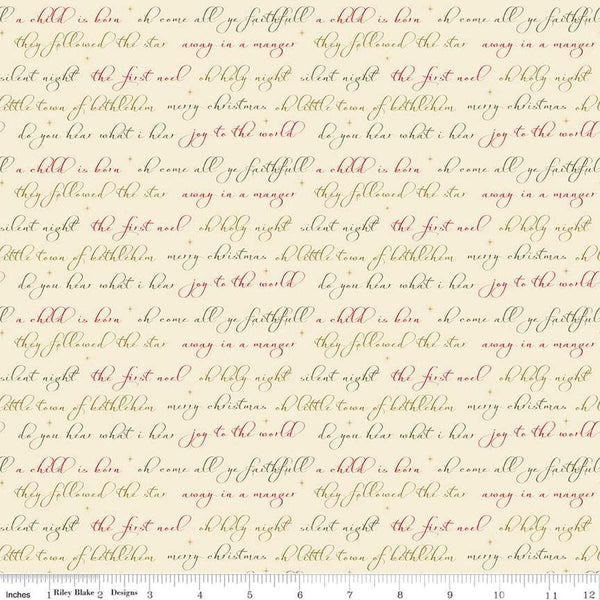 ll a child is born oh come all ye faithfull a child is born oh come all ye faithfull
they followed the star away in a manger they followed the star away in a manger
silent night the first noel oh holy night silent night the first noel oh holy night
little town of bethlehem merry christmas oh little town of bethlehem merry christmas oh
do you hear what i hear joy to the world do you hear what i hear joy to the world
ll a child is born oh come all ye faithfull a child is born oh come all ye faithfull
they followed the star away in a manger they followed the star away in a manger
silent night the first noel oh holy night silent night the first noel oh holy night
little town of bethlehem merry christmas oh little town of bethlehem merry christmas oh
do you hear what i hear joy to the world do you hear what i hear joy to the world
ll a child is born oh come all ye faithfull a child is born oh come all ye faithfull
they followed the star away in a manger they followed the star away in a manger
silent night the first noel oh holy night silent night the first noel oh holy night
little town of bethlehem merry christmas oh little town of bethlehem merry christmas oh
do you hear what i hear joy to the world do you hear what i hear joy to the world
ll a child is born oh come all ye faithfull a child is born oh come all ye faithfull
they followed the star away in a manger they followed the star away in a manger
silent night the first noel oh holy night silent night the first noel oh holy night
little town of bethlehem merry christmas oh little town of bethlehem merry christmas oh
Inches 1 Riley Blake 2 Designs 3 4 5 6 7 8 9 10 11 12